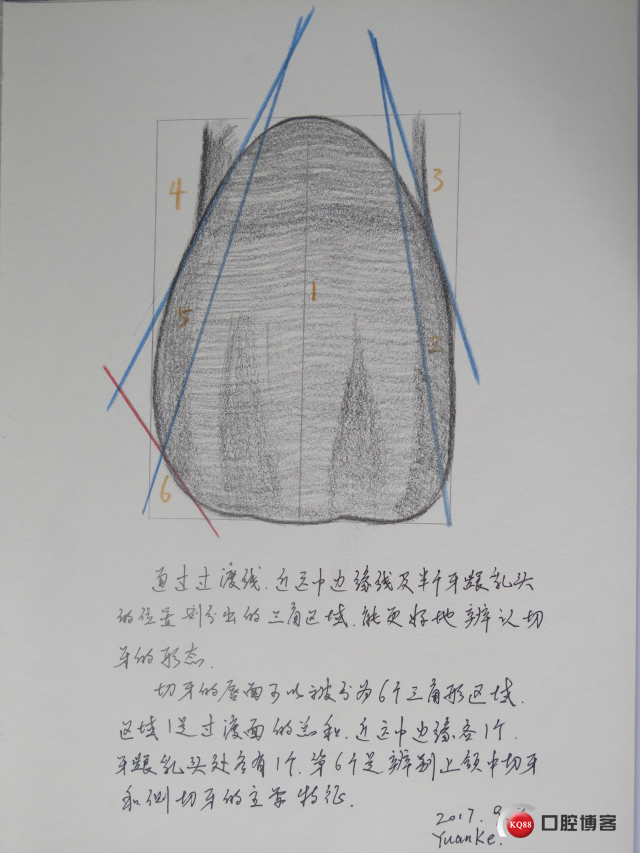 4
3
1
5
2
6
通过过渡线.近远中边缘线及半个牙龈乳头
的位置划分出的三角区域.能更好地辨认切
牙的形态.
切牙的唇面可以被分为6个三角形区域.
区域1是过渡面的总和.近远中边缘各1个.
牙龈乳头处各有1个.第6个是辨别上颌中切牙
和侧切牙的主要特征.
2017. 9
YuanKe.
KQ88 口腔博客